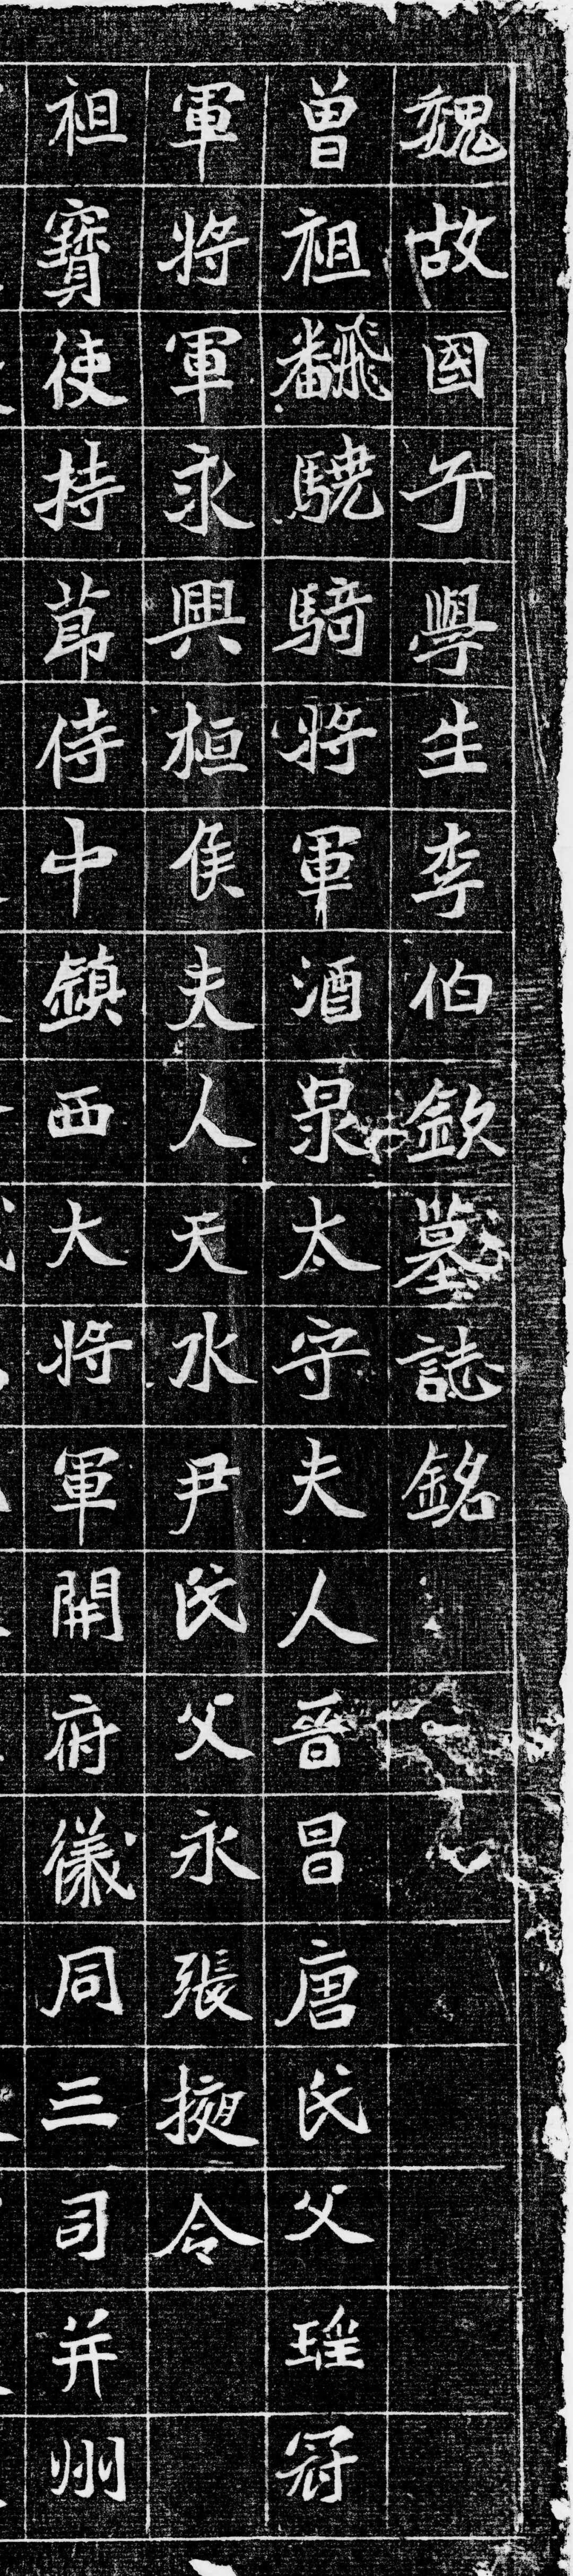 魏故國子學生李伯欽墓誌銘
曾祖飜驍騎將軍酒泉太守夫人晉昌唐氏父瑶冠
軍將軍永興桓侯夫人天水尹氏父永張掖令
祖寶使持節侍中鎮西大將軍開府儀同三司并州